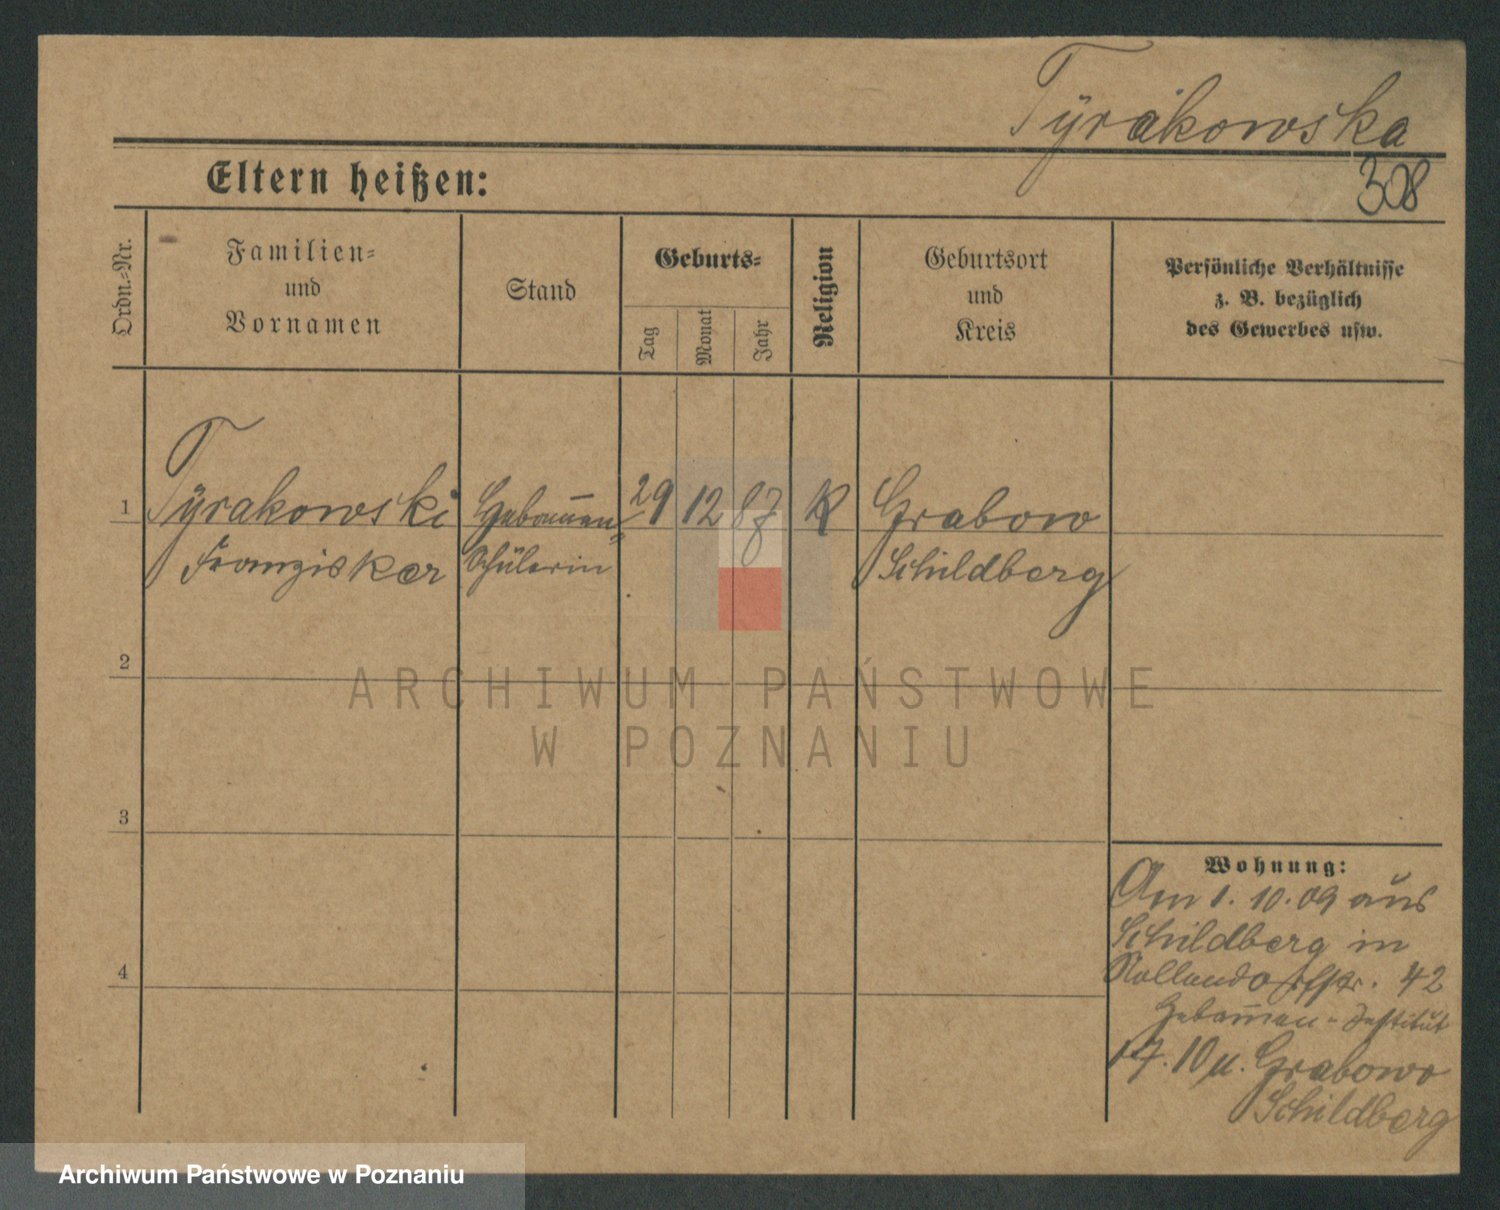 Tyrakowska
308
Eltern heißen:
Ordn.-Nr.
Familien-
und
Vornamen
Stand
Geburts-
Tag
Monat
Jahr
Religion
Geburtsort
und
Kreis
Persönliche Verhältnisse
z. B. bezüglich
des Gewerbes usw.
1
Tyrakowski
Hebammen-
29 12 87
K
Grabow
Schülerin
Schildberg
ARCHIWUM PAŃSTWOWE
W POZNANIU
2
3
4
Wohnung:
Am 1. 10. 09 aus
Schildberg in
42
Hebammen-Institut
Grabow
Schildberg
Archiwum Państwowe w Poznaniu